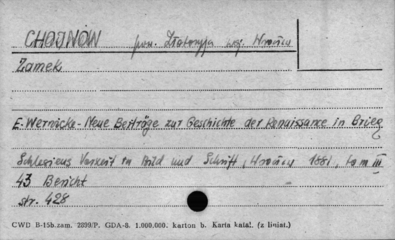 CHOJNÓW pow. Złotoryja woj. Wrocław
Zamek
E. Wernicke - Neue Beiträge zur Geschichte der Renaissance in Brieg
Schlesiens Vorzeit in Bild und Schrift, Wrocław 1881, tom III
43 Bericht
str. 428
CWD B-15b.zam. 2899/P. GDA-8. 1.000.000. karton b. Karta katal. (z liniat.)